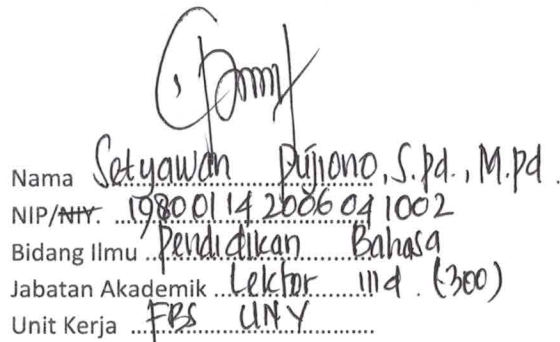 Nama Setyawan Pujiono, S.Pd., M.Pd.
NIP/NIY. 19800114 200604 1002
Bidang Ilmu Pendidikan Bahasa
Jabatan Akademik Lektor IIId. (300)
Unit Kerja FBS UNY